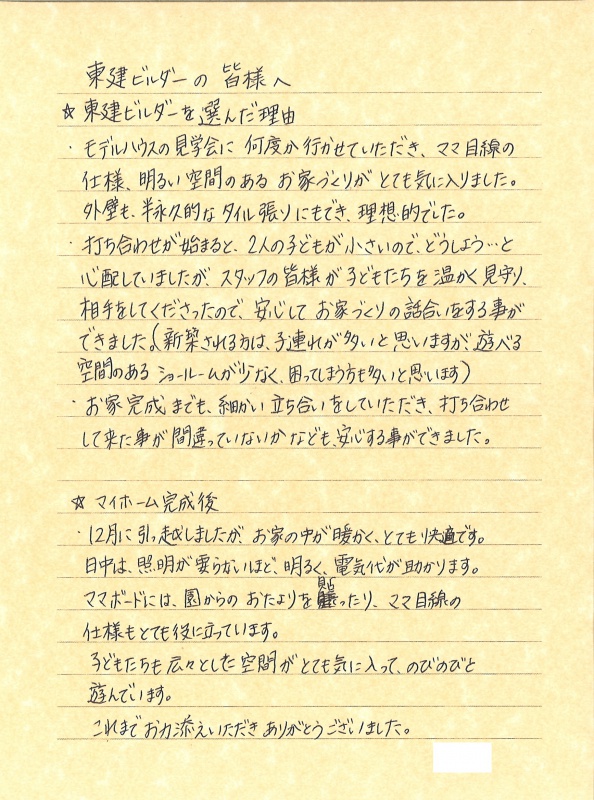 東建ビルダーの 皆様へ
☆ 東建ビルダーを選んだ理由
・モデルハウスの見学会に 何度か行かせていただき、ママ目線の
仕様、明るい空間のある お家づくりが とても気に入りました。
外壁も、半永久的な タイル張りにもでき、理想的でした。
・打ち合わせが始まると、2人の子どもが小さいので、どうしよう…と
心配していましたが、スタッフの皆様が 子どもたちを 温かく見守り、
相手をしてくださったので、安心して お家づくりの話合いをする事が
できました。(新築される方は、子連れが多いと思いますが、遊べる
空間のある ショールームが少なく、困ってしまう方も多いと思います)
・お家完成までも、細かい立ち合いをしていただき、打ち合わせ
して来た事が 間違っていないかなども、安心する事ができました。
☆ マイホーム完成後
・12月に引っ越しましたが、お家の中が暖かく、とても快適です。
日中は、照明が要らないほど、明るく、電気代が助かります。
ママボードには、園からの おたよりを 貼ったり、ママ目線の
仕様もとても役に立っています。
子どもたちも 広々とした空間が とても気に入って、のびのびと
遊んでいます。
これまで お力添えいただき ありがとうございました。